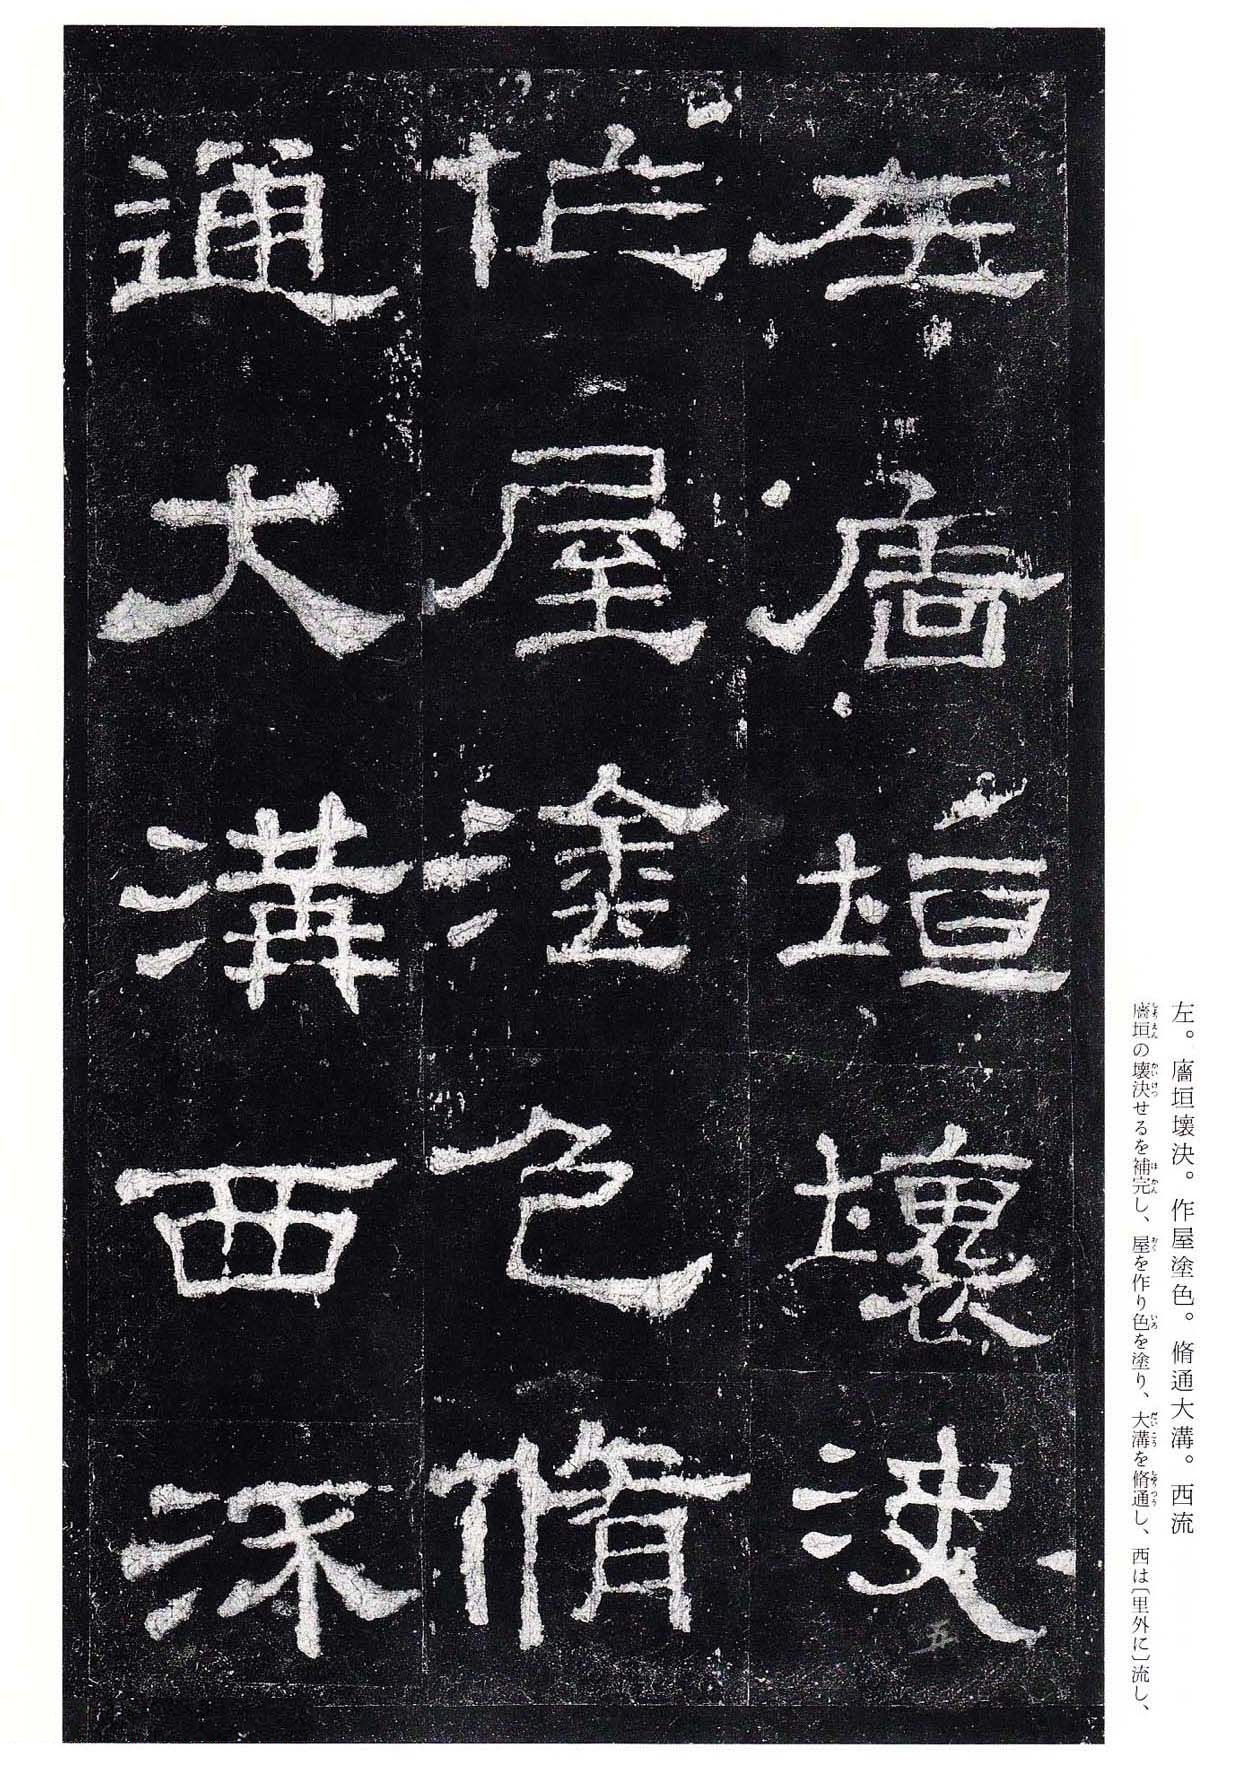 左廧垣壊決
作屋塗色脩
通大溝西流
五
左。廧垣壊決。作屋塗色。脩通大溝。西流
廧垣の壊決せるを補完し、屋を作り色を塗り、大溝を脩通し、西は〔里外に〕流し、